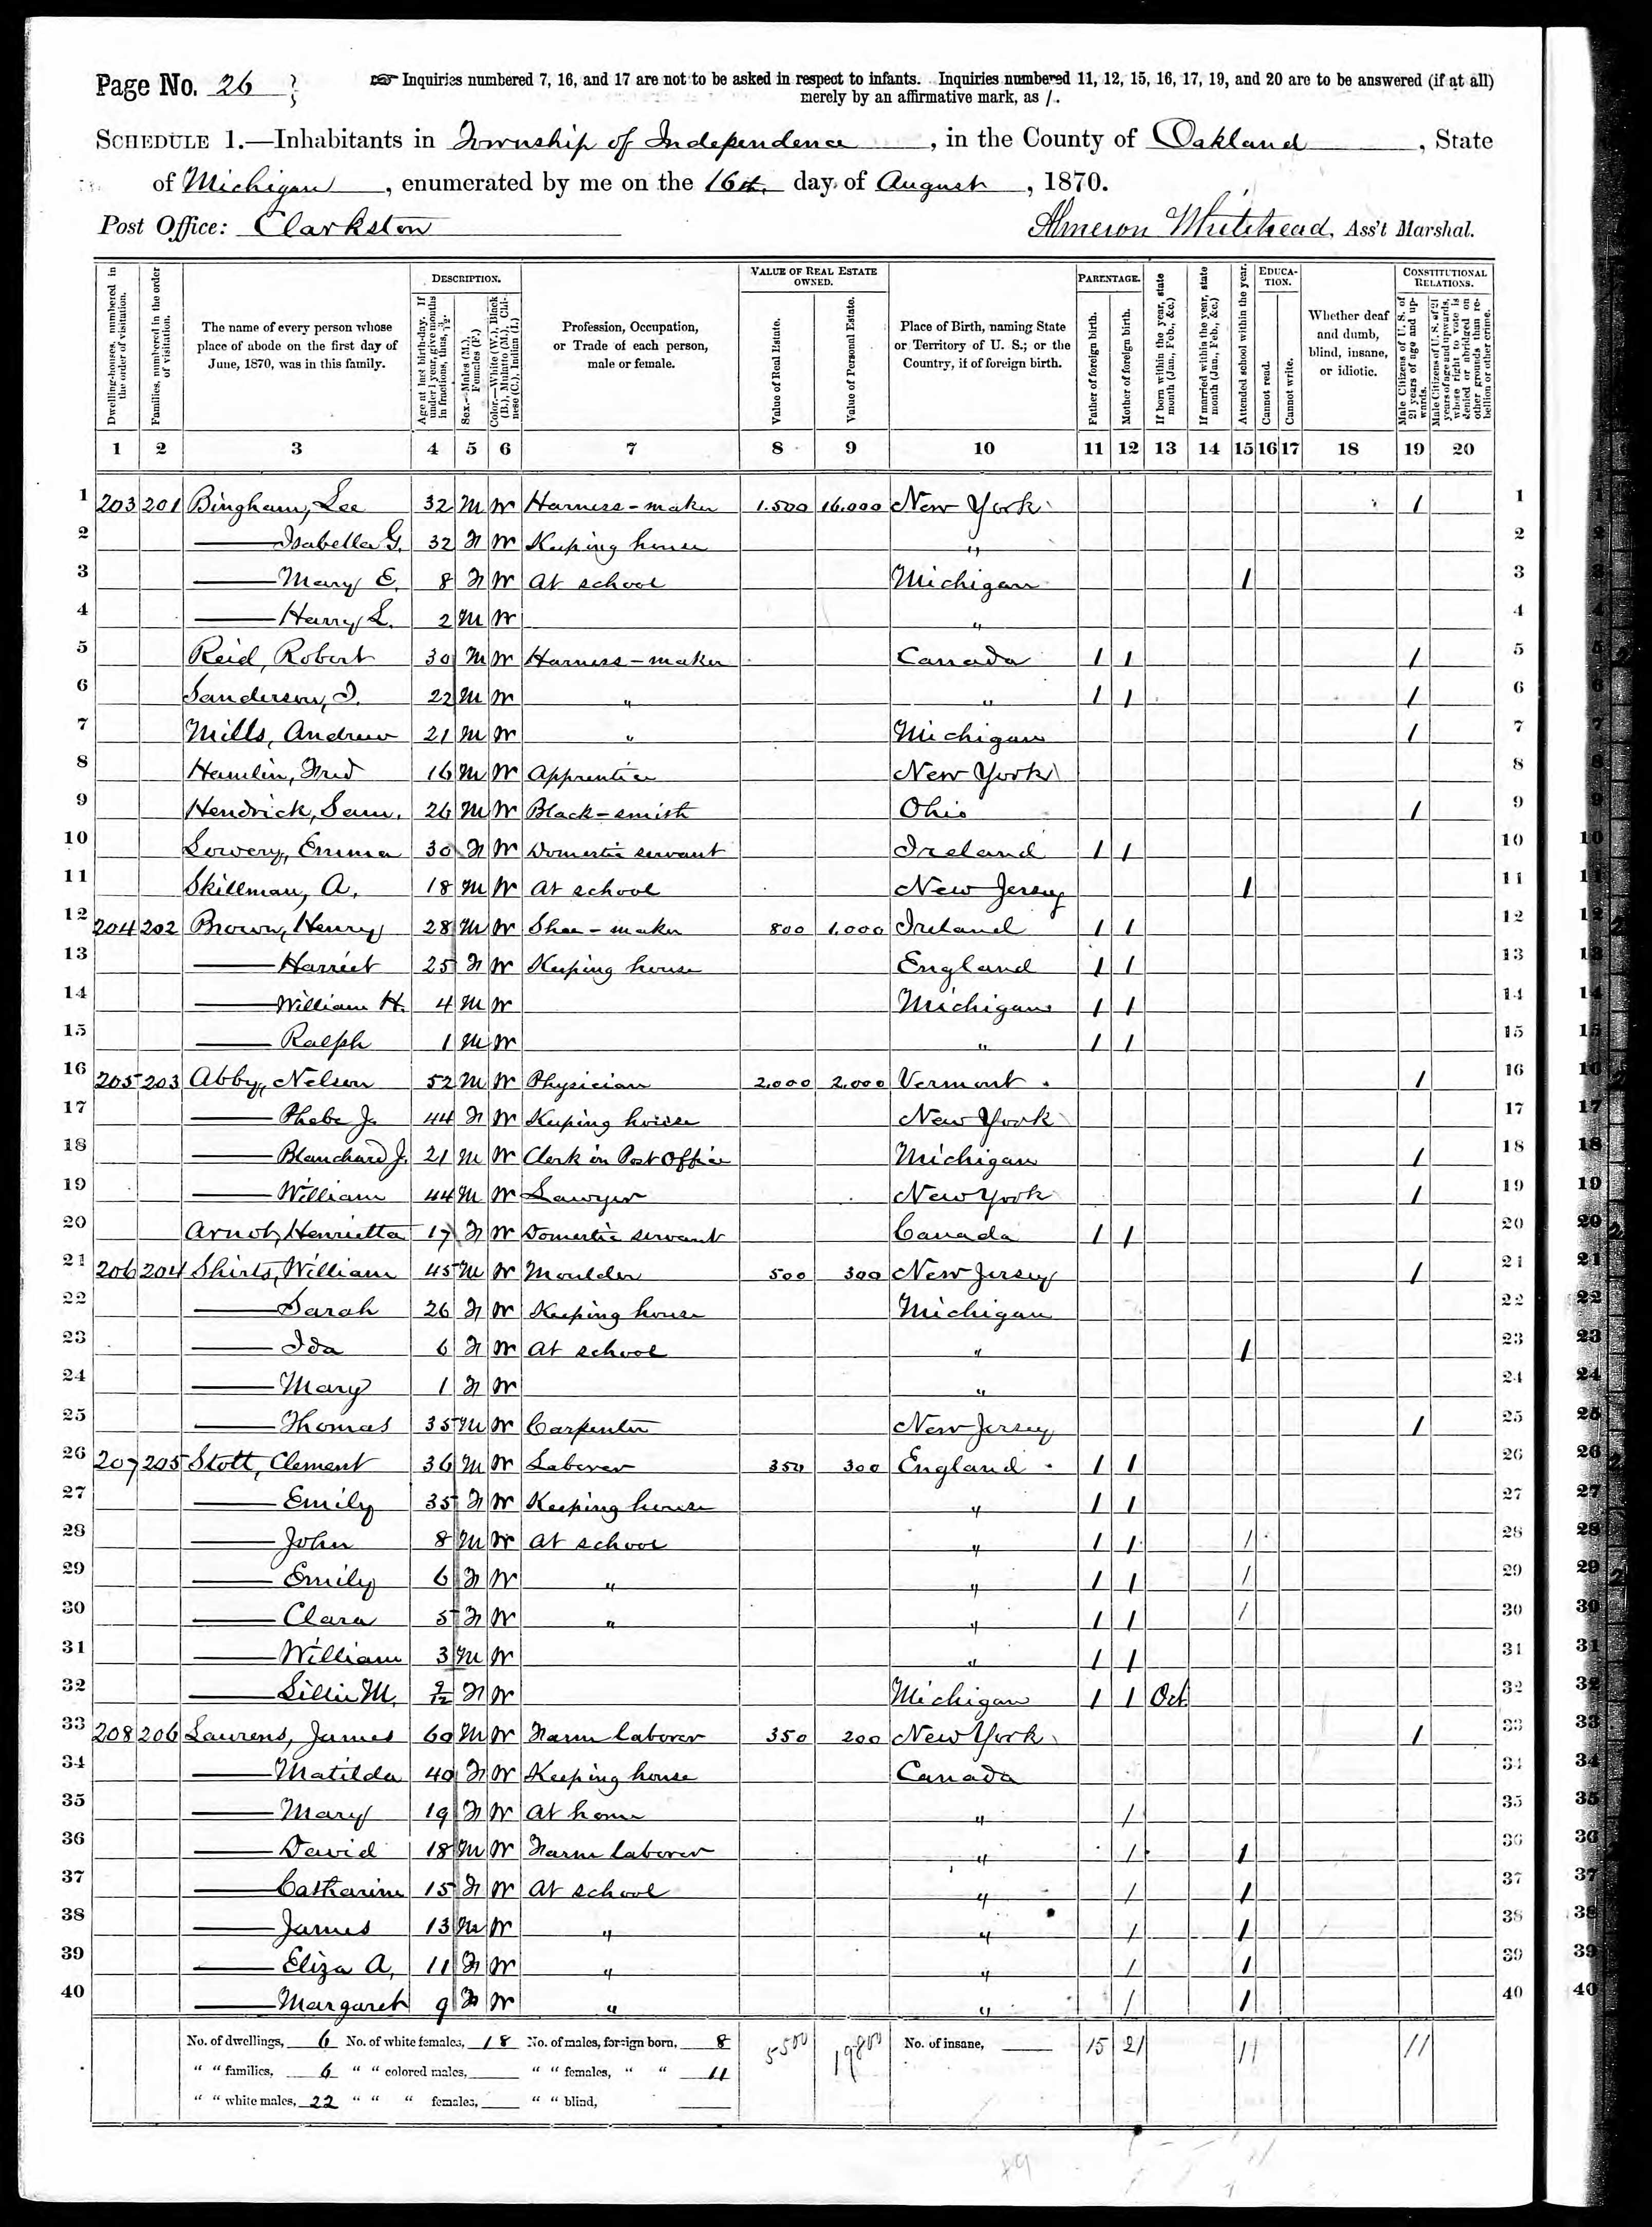 Page No. 26
☞ Inquiries numbered 7, 16, and 17 are not to be asked in respect to infants. Inquiries numbered 11, 12, 15, 16, 17, 19, and 20 are to be answered (if at all)
merely by an affirmative mark, as /.
SCHEDULE 1.—Inhabitants in Township of Independence, in the County of Oakland, State
of Michigan, enumerated by me on the 16th day of August, 1870.
Post Office: Clarkston Almeron Whitehead, Ass't Marshal.
Dwelling-houses, numbered in the order of visitation.
Families, numbered in the order of visitation.
The name of every person whose place of abode on the first day of June, 1870, was in this family.
DESCRIPTION.
Age at last birth-day. If under 1 year, give months in fractions, thus, 3/12.
Sex.—Males (M.), Females (F.)
Color.—White (W.), Black (B.), Mulatto (M.), Chinese (C.), Indian (I.)
Profession, Occupation, or Trade of each person, male or female.
VALUE OF REAL ESTATE OWNED.
Value of Real Estate.
Value of Personal Estate.
Place of Birth, naming State or Territory of U. S.; or the Country, if of foreign birth.
PARENTAGE.
Father of foreign birth.
Mother of foreign birth.
If born within the year, state month (Jan., Feb., &c.)
If married within the year, state month (Jan., Feb., &c.)
EDUCATION.
Attended school within the year.
Cannot read.
Cannot write.
Whether deaf and dumb, blind, insane, or idiotic.
CONSTITUTIONAL RELATIONS.
Male Citizens of U. S. of 21 years of age and upwards.
Male Citizens of U. S. of 21 years of age and upwards, whose right to vote is denied or abridged on other grounds than rebellion or other crime.
1 2 3 4 5 6 7 8 9 10 11 12 13 14 15 16 17 18 19 20
1 203 201 Bingham, Lee 32 M W Harness-maker 1.500 16.000 New York / 1
2 —— Isabella G. 32 F W Keeping house " 2
3 —— Mary E. 8 F W At school Michigan / 3
4 —— Harry L. 2 M W " 4
5 Reid, Robert 30 M W Harness-maker Canada / / / 5
6 Sanderson, I. 22 M W " " / / / 6
7 Mills, Andrew 21 M W " Michigan / 7
8 Hamlin, Fred 16 M W Apprentice New York 8
9 Hendrick, Sam. 26 M W Black-smith Ohio / 9
10 Lowery, Emma 30 F W Domestic servant Ireland / / 10
11 Skillman, A. 18 M W At school New Jersey / 11
12 204 202 Brown, Henry 28 M W Shoe-maker 800 1.000 Ireland / / 12
13 —— Harriet 25 F W Keeping house England / / 13
14 —— William H. 4 M W Michigan / / 14
15 —— Ralph 1 M W " / / 15
16 205 203 Abby, Nelson 52 M W Physician 2.000 2.000 Vermont / 16
17 —— Phebe J. 44 F W Keeping house New York 17
18 —— Blanchard J. 21 M W Clerk in Post Office Michigan / 18
19 —— William 44 M W Lawyer New York / 19
20 Arnot, Henrietta 17 F W Domestic servant Canada / / 20
21 206 204 Shirts, William 45 M W Moulder 500 300 New Jersey / 21
22 —— Sarah 26 F W Keeping house Michigan 22
23 —— Ida 6 F W At school " / 23
24 —— Mary 1 F W " 24
25 —— Thomas 35 M W Carpenter New Jersey / 25
26 207 205 Stott, Clement 36 M W Laborer 350 300 England / / 26
27 —— Emily 35 F W Keeping house " / / 27
28 —— John 8 M W At school " / / / 28
29 —— Emily 6 F W " " / / / 29
30 —— Clara 5 F W " " / / / 30
31 —— William 3 M W " / / 31
32 —— Lillie M. 9/12 F W Michigan / / Oct 32
33 208 206 Laurens, James 60 M W Farm laborer 350 200 New York / 33
34 —— Matilda 40 F W Keeping house Canada 34
35 —— Mary 19 F W At home " / 35
36 —— David 18 M W Farm laborer " / / 36
37 —— Catharine 15 F W At school " / / 37
38 —— James 13 M W " " / / 38
39 —— Eliza A. 11 F W " " / / 39
40 —— Margaret 9 F W " " / / 40
No. of dwellings, 6 No. of white females, 18 No. of males, foreign born, 8 5500 19800 No. of insane, —— 15 21 11 11
" " families, 6 " " colored males, " " females, " " 11
" " white males, 22 " " " females, " " blind,
89